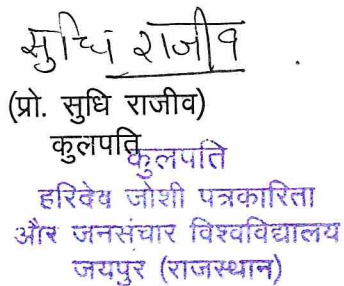 सुधि राजीव
(प्रो. सुधि राजीव)
कुलपति
कुलपति
हरिदेव जोशी पत्रकारिता
और जनसंचार विश्वविद्यालय
जयपुर (राजस्थान)